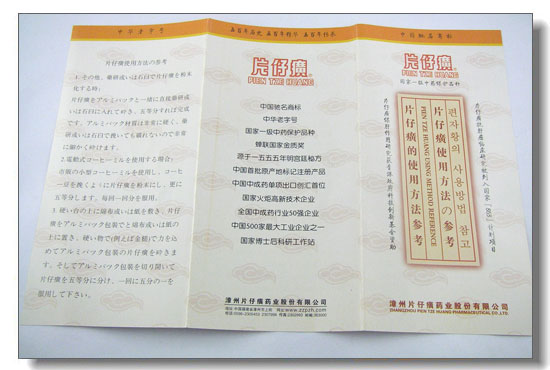 中华老字号
片仔癀使用方法の参考
1. その他、薬研或いは石臼で片仔癀を粉末
化する時;
片仔癀をアルミパックと一緒に直接薬研或
いは石臼に入れて砕き、五等分すれば完成
です。アルミパック材質は非常に硬く、薬
研或いは石臼で挽いても破れないので非常
に細かく砕けます。
2. 電動式コーヒーミルを使用する場合;
市販の小型コーヒーミルを使用し、コーヒ
ー豆を挽くように片仔癀を粉末にし、更に
五等分します。毎回一回分を服用。
3. 硬い台の上に綿布或いは紙を敷き、片仔
癀をアルミパックで上に綿布或いは紙の
上に置き、硬い物で(例えば金槌)で力を込
めてアルミパック包装の片仔癀を砕きま
す。そしてアルミパック包装を切り開いて
片仔癀を五等分に分け、一回に五分の一を
服用して下さい。
五百年历史 五百年精华 五百年传承
片仔癀
PIEN TZE HUANG
中国驰名商标
中华老字号
国家一级中药保护品种
蝉联国家金质奖
源于一五五五年明宫廷秘方
中国首批原产地标记注册产品
中国中成药单项出口创汇首位
国家火炬高新技术企业
全国中成药行业50强企业
中国500家最大工业企业之一
国家博士后科研工作站
漳州片仔癀药业股份有限公司
中国驰名商标
片仔癀
PIEN TZE HUANG
国家一级中药保护品种
편자황의 사용방법 참고
片仔癀使用方法の参考
PIEN TZE HUANG USING METHOD REFERENCE
片仔癀的使用方法参考
漳州片仔癀药业股份有限公司
ZHANGZHOU PIEN TZE HUANG PHARMACEUTICAL CO.,LTD.